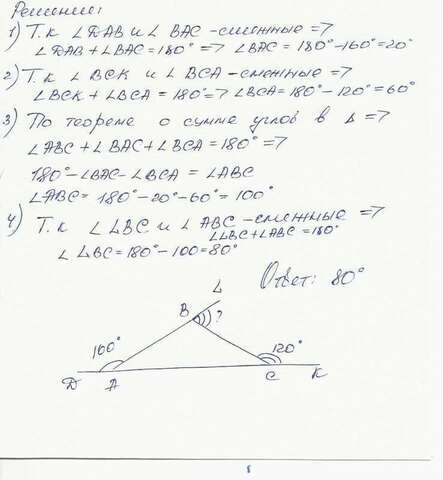 Решение:
1) Т.к ∠DAB и ∠ BAC - смежные =>
∠DAB + ∠BAC = 180° => ∠BAC = 180° - 160° = 20°
2) Т.к ∠BCK и ∠BCA - смежные =>
∠BCK + ∠BCA = 180° => ∠BCA = 180° - 120° = 60°
3) По теореме о сумме углов в Δ =>
∠ABC + ∠BAC + ∠BCA = 180° =>
180° - ∠BAC - ∠BCA = ∠ABC
∠ABC = 180° - 20° - 60° = 100°
4) Т.к ∠LBC и ∠ABC - смежные =>
∠LBC + ∠ABC = 180°
∠LBC = 180° - 100 = 80°
Ответ: 80°
L
B ?
160° 120°
D A C K